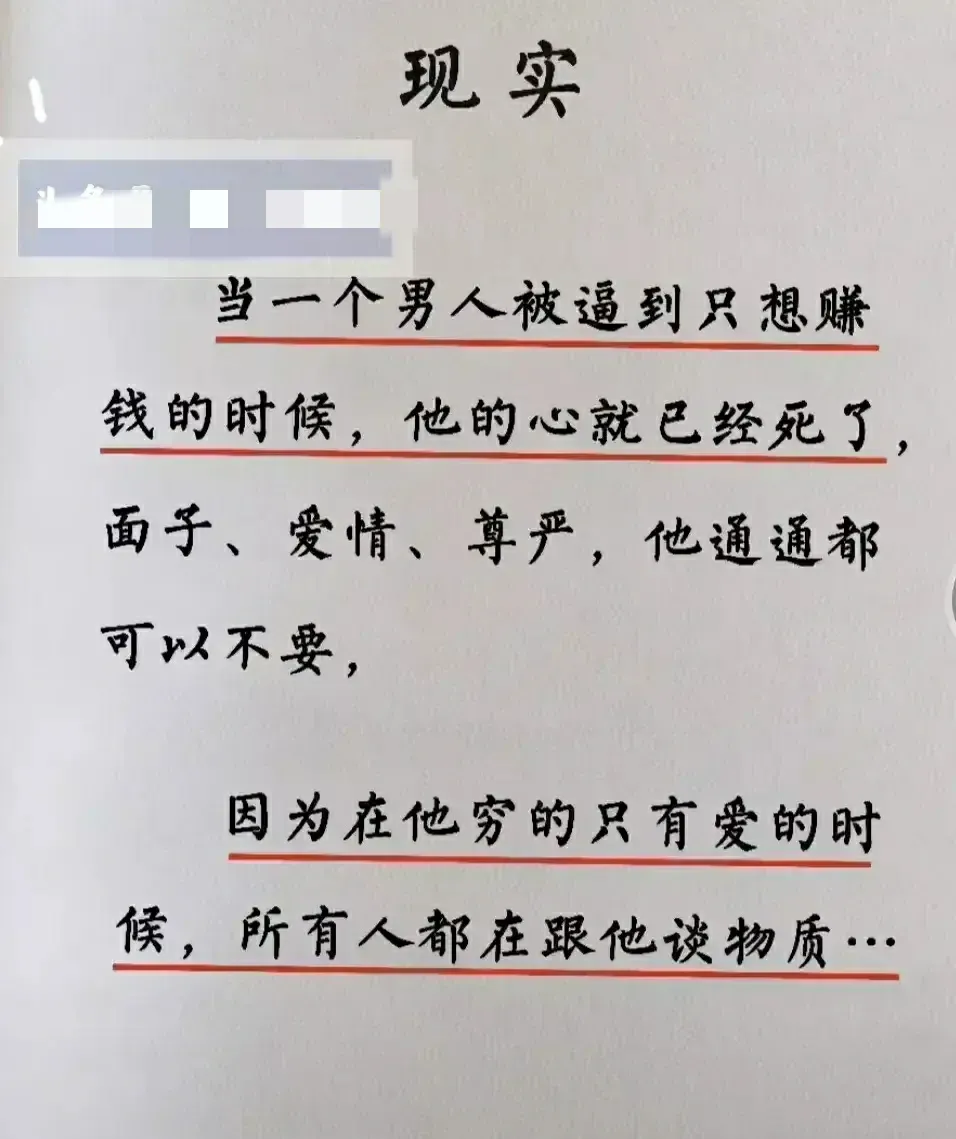 现实
当一个男人被逼到只想赚
钱的时候，他的心就已经死了，
面子、爱情、尊严，他通通都
可以不要，
因为在他穷的只有爱的时
候，所有人都在跟他谈物质…